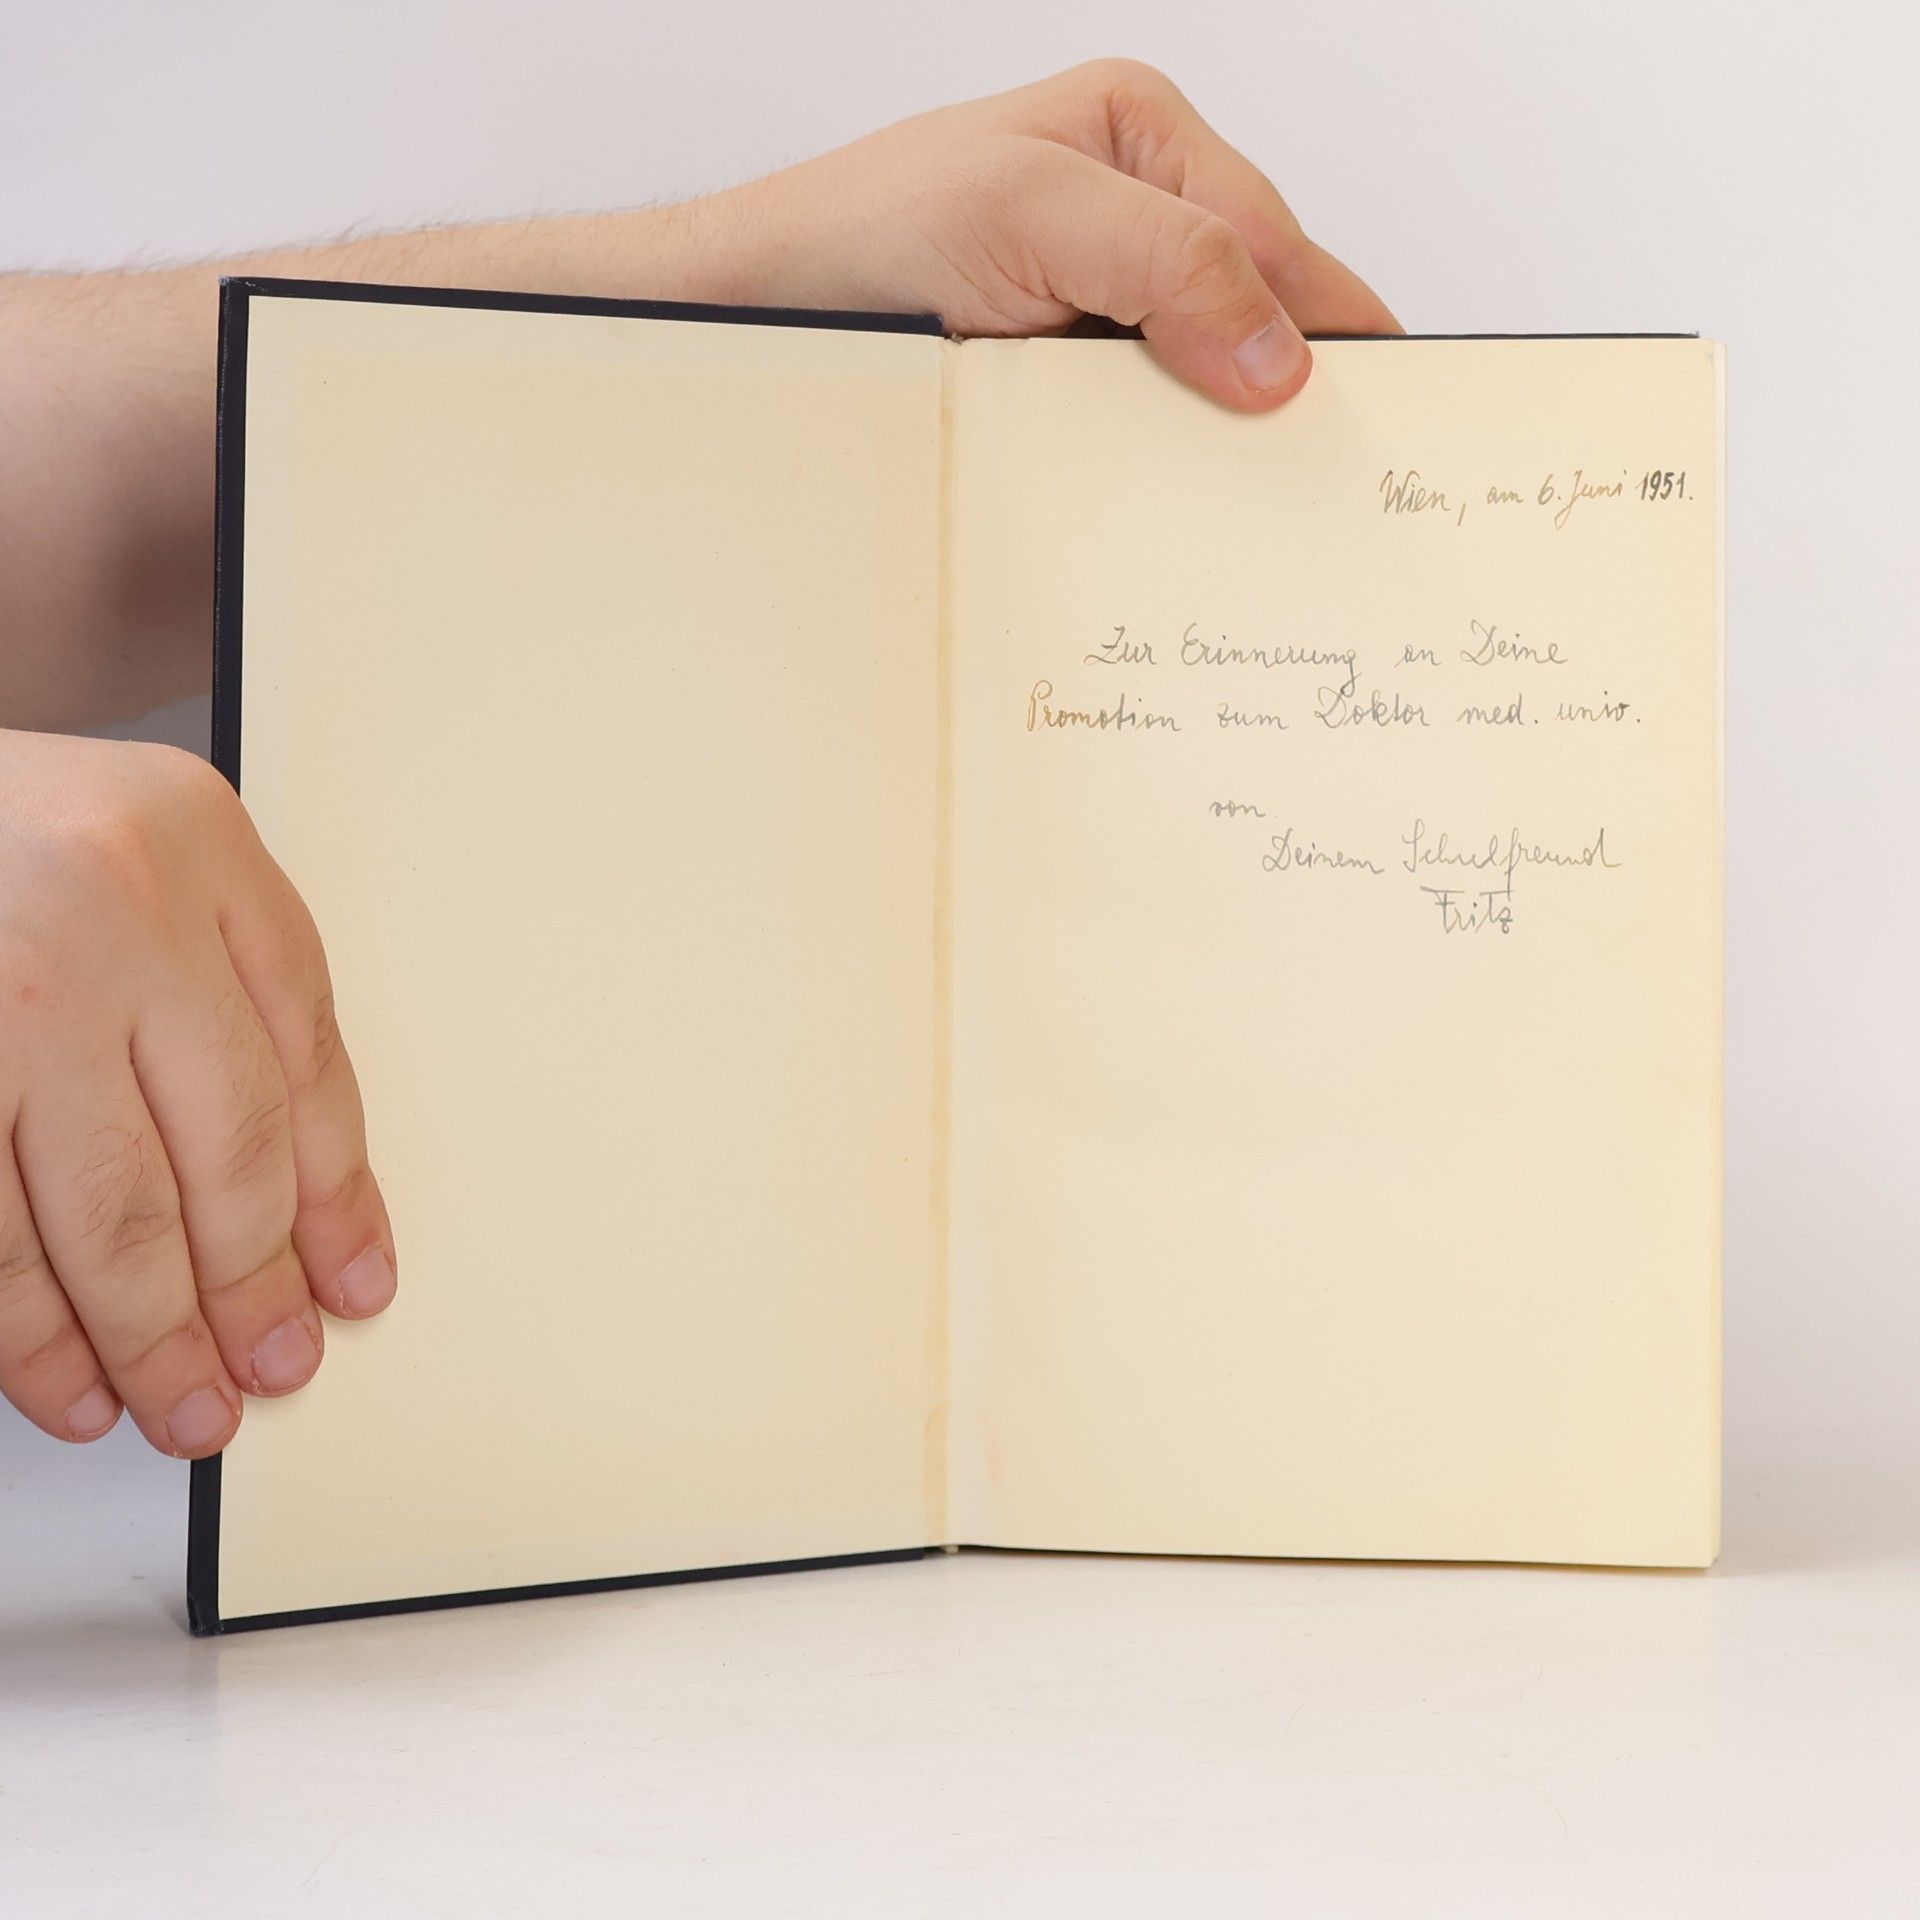 Wien, am 6. Juni 1951.
Zur Erinnerung an Deine
Promotion zum Doktor med. univ.
von
Deinem Schulfreund
Fritz